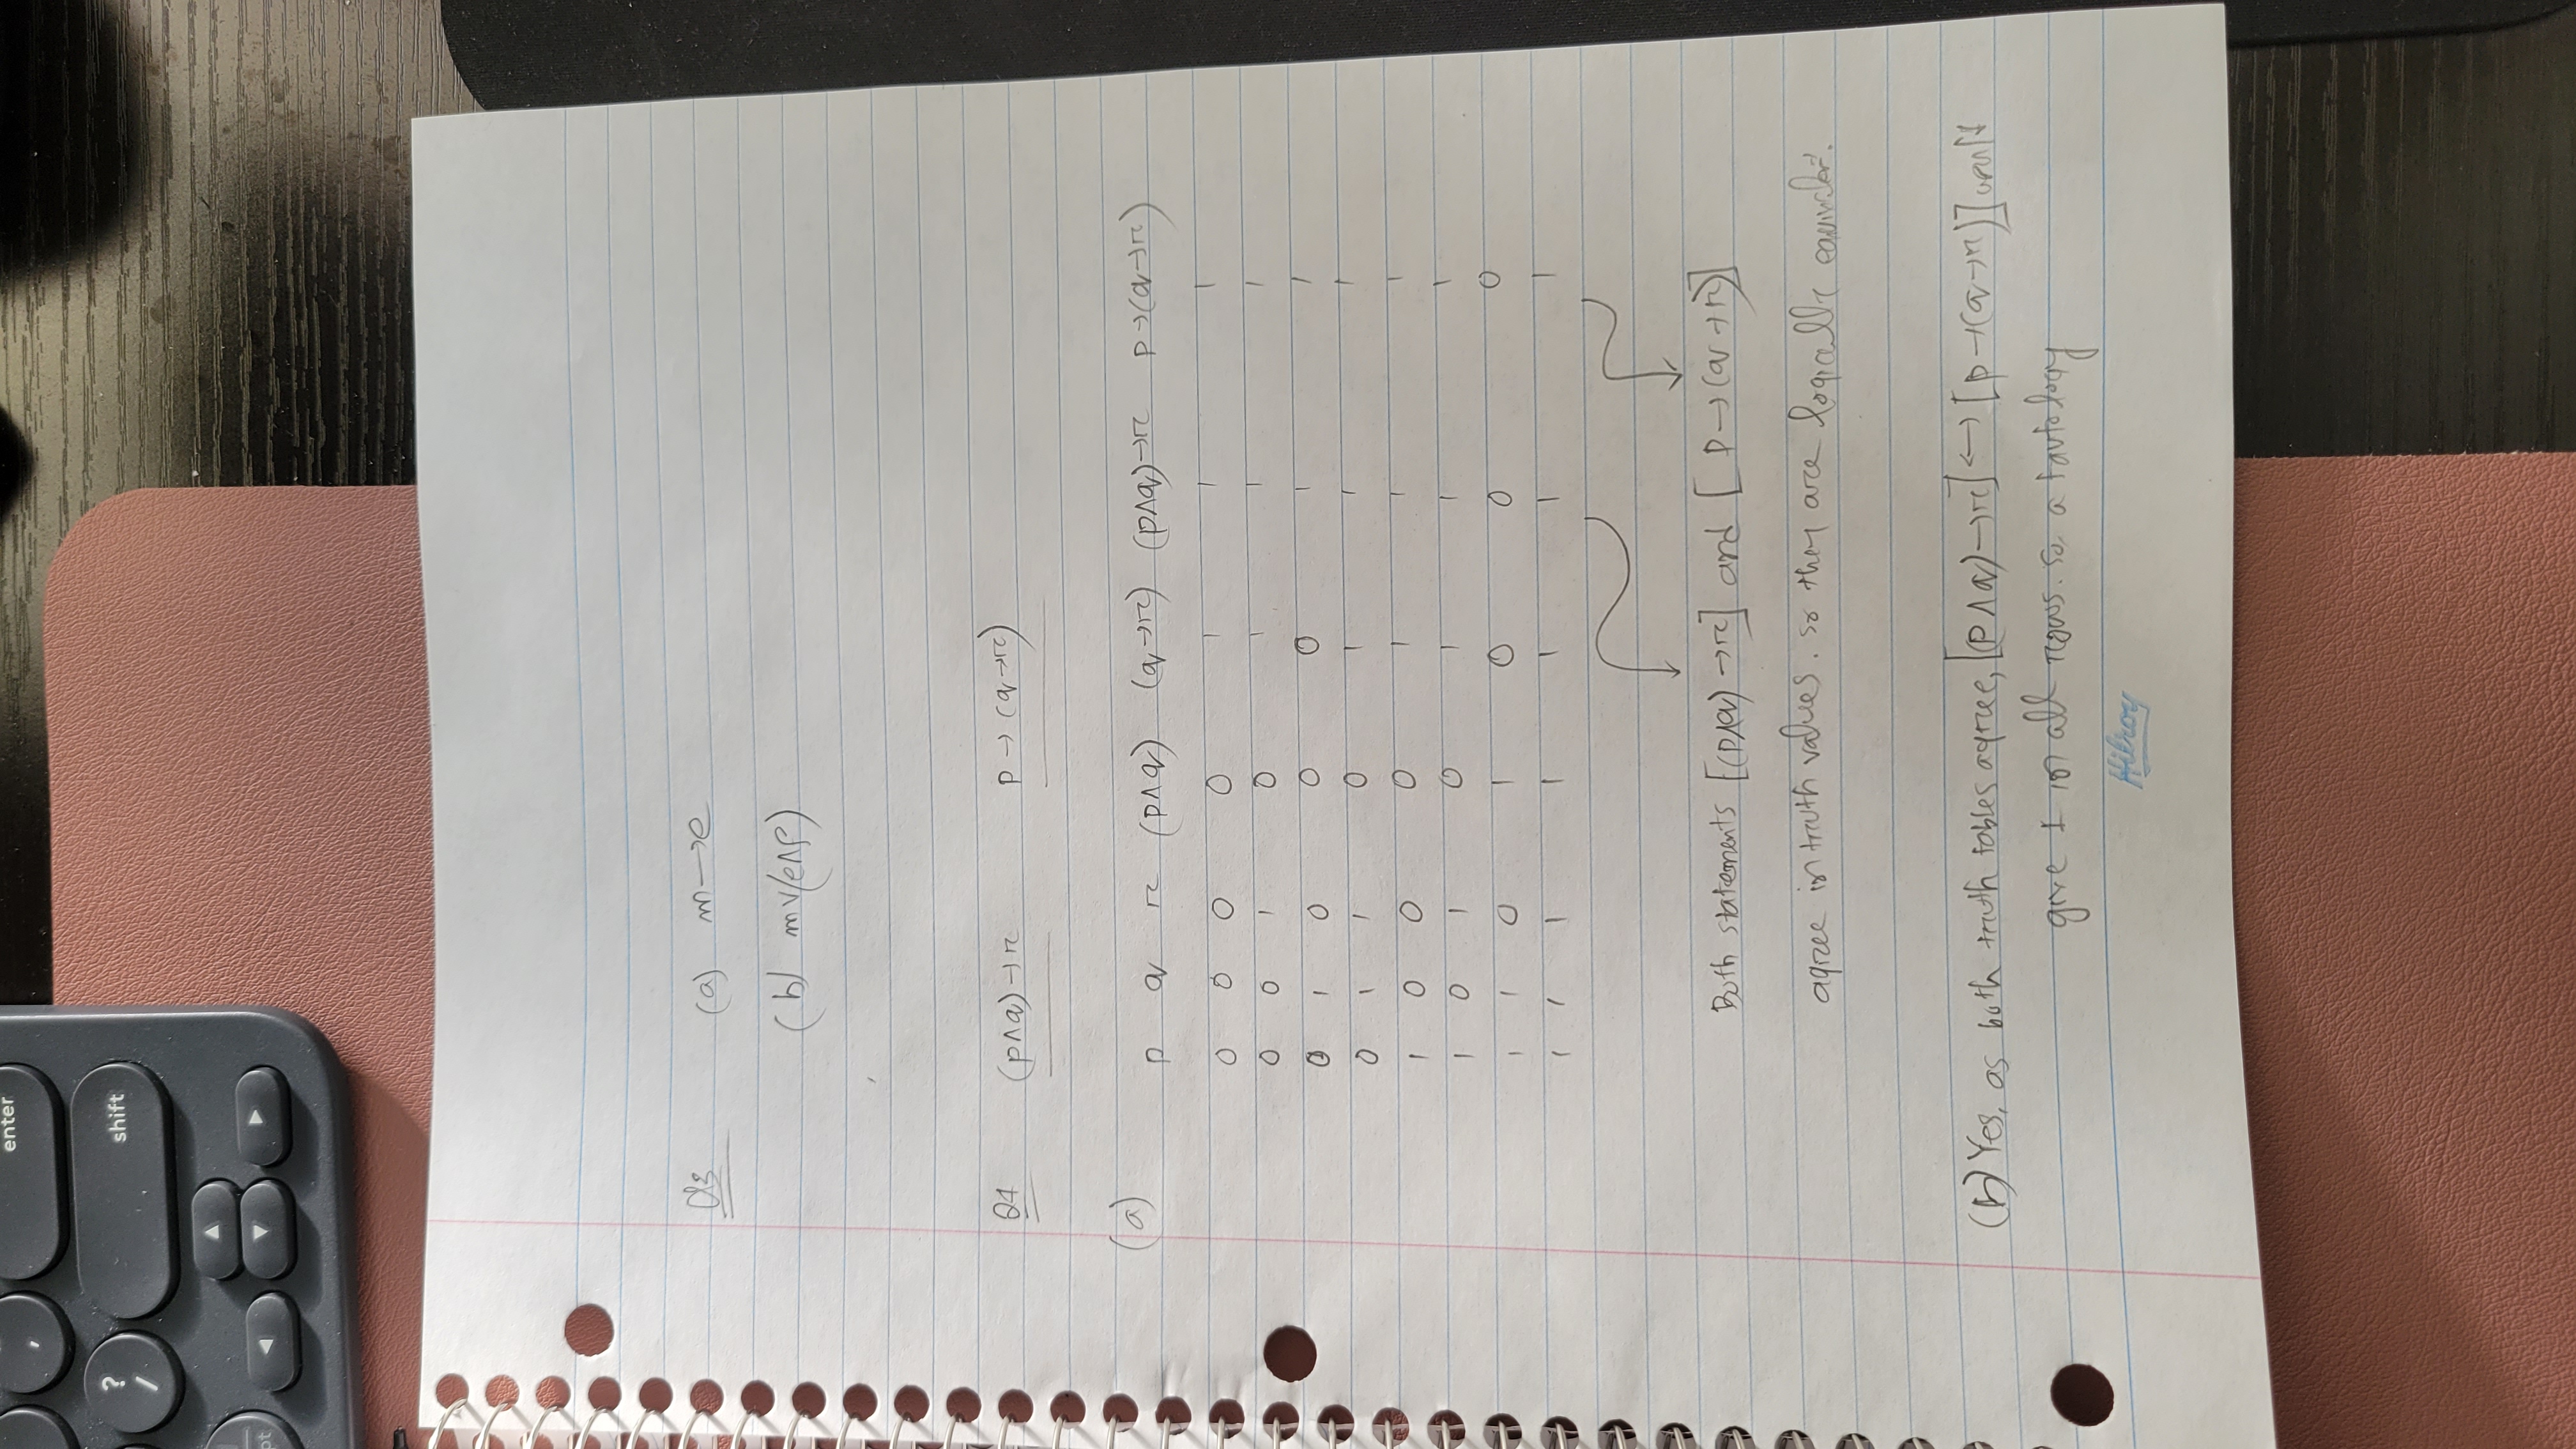 enter
,
?
/
shift
▲
◀ ▼ ▶
pt
Q3 (a) m→e
(b) m∨(e∧p)
Q4 (p∧q)→r p→(q→r)
(a)
p q r (p∧q) (q→r) (p∧q)→r p→(q→r)
0 0 0 0 1 1 1
0 0 1 0 1 1 1
0 1 0 0 0 1 1
0 1 1 0 1 1 1
1 0 0 0 1 1 1
1 0 1 0 1 1 1
1 1 0 1 0 0 0
1 1 1 1 1 1 1
Both statements [(p∧q)→r] and [p→(q→r)]
agree in truth values. so they are logically equivalent.
(b) Yes, as both truth tables agree, [(p∧q)→r]↔[p→(q→r)]
give 1 in all rows. so, a tautology
Hilroy